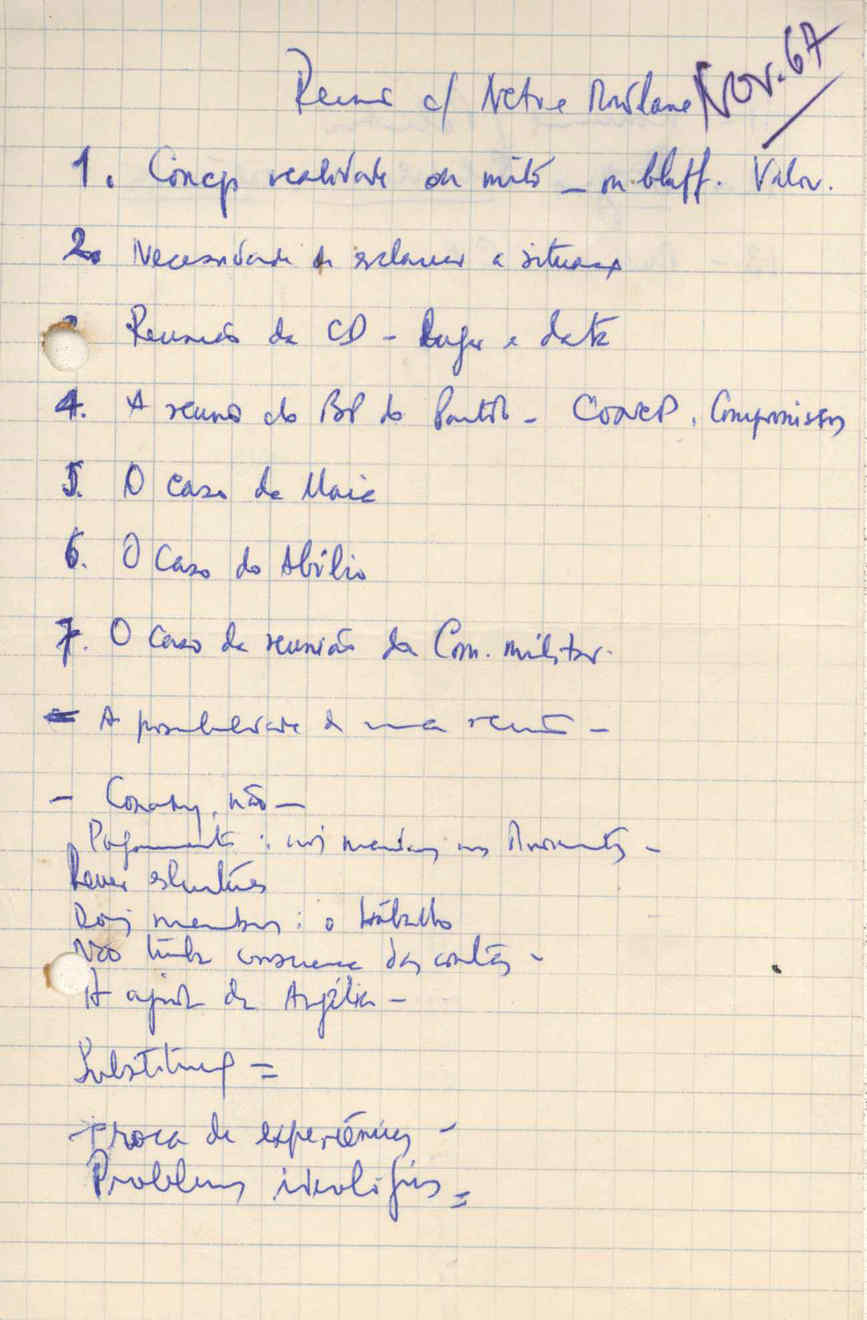 Reunião c/ Neto e Mondlane Nov. 67
1. Concp realidade ou mito – ou bluff. Valor.
2. Necessidade de esclarecer a situação
3. Reunião da CD – Lugar e data
4. A reunião do BP do Partido – CONCP, Compromissos
5. O caso da
6. O caso do Abílio
7. O caso da reunião da Com. militar.
– A possibilidade de uma reunião –
– Conakry, não –
Pagamento : dos membros nos
Rever estatutos
Dois membros : o trabalho
Não tinha consciência das contas –
A ajuda da Argélia –
Substituição =
Troca de experiências –
Problemas ideológicos =